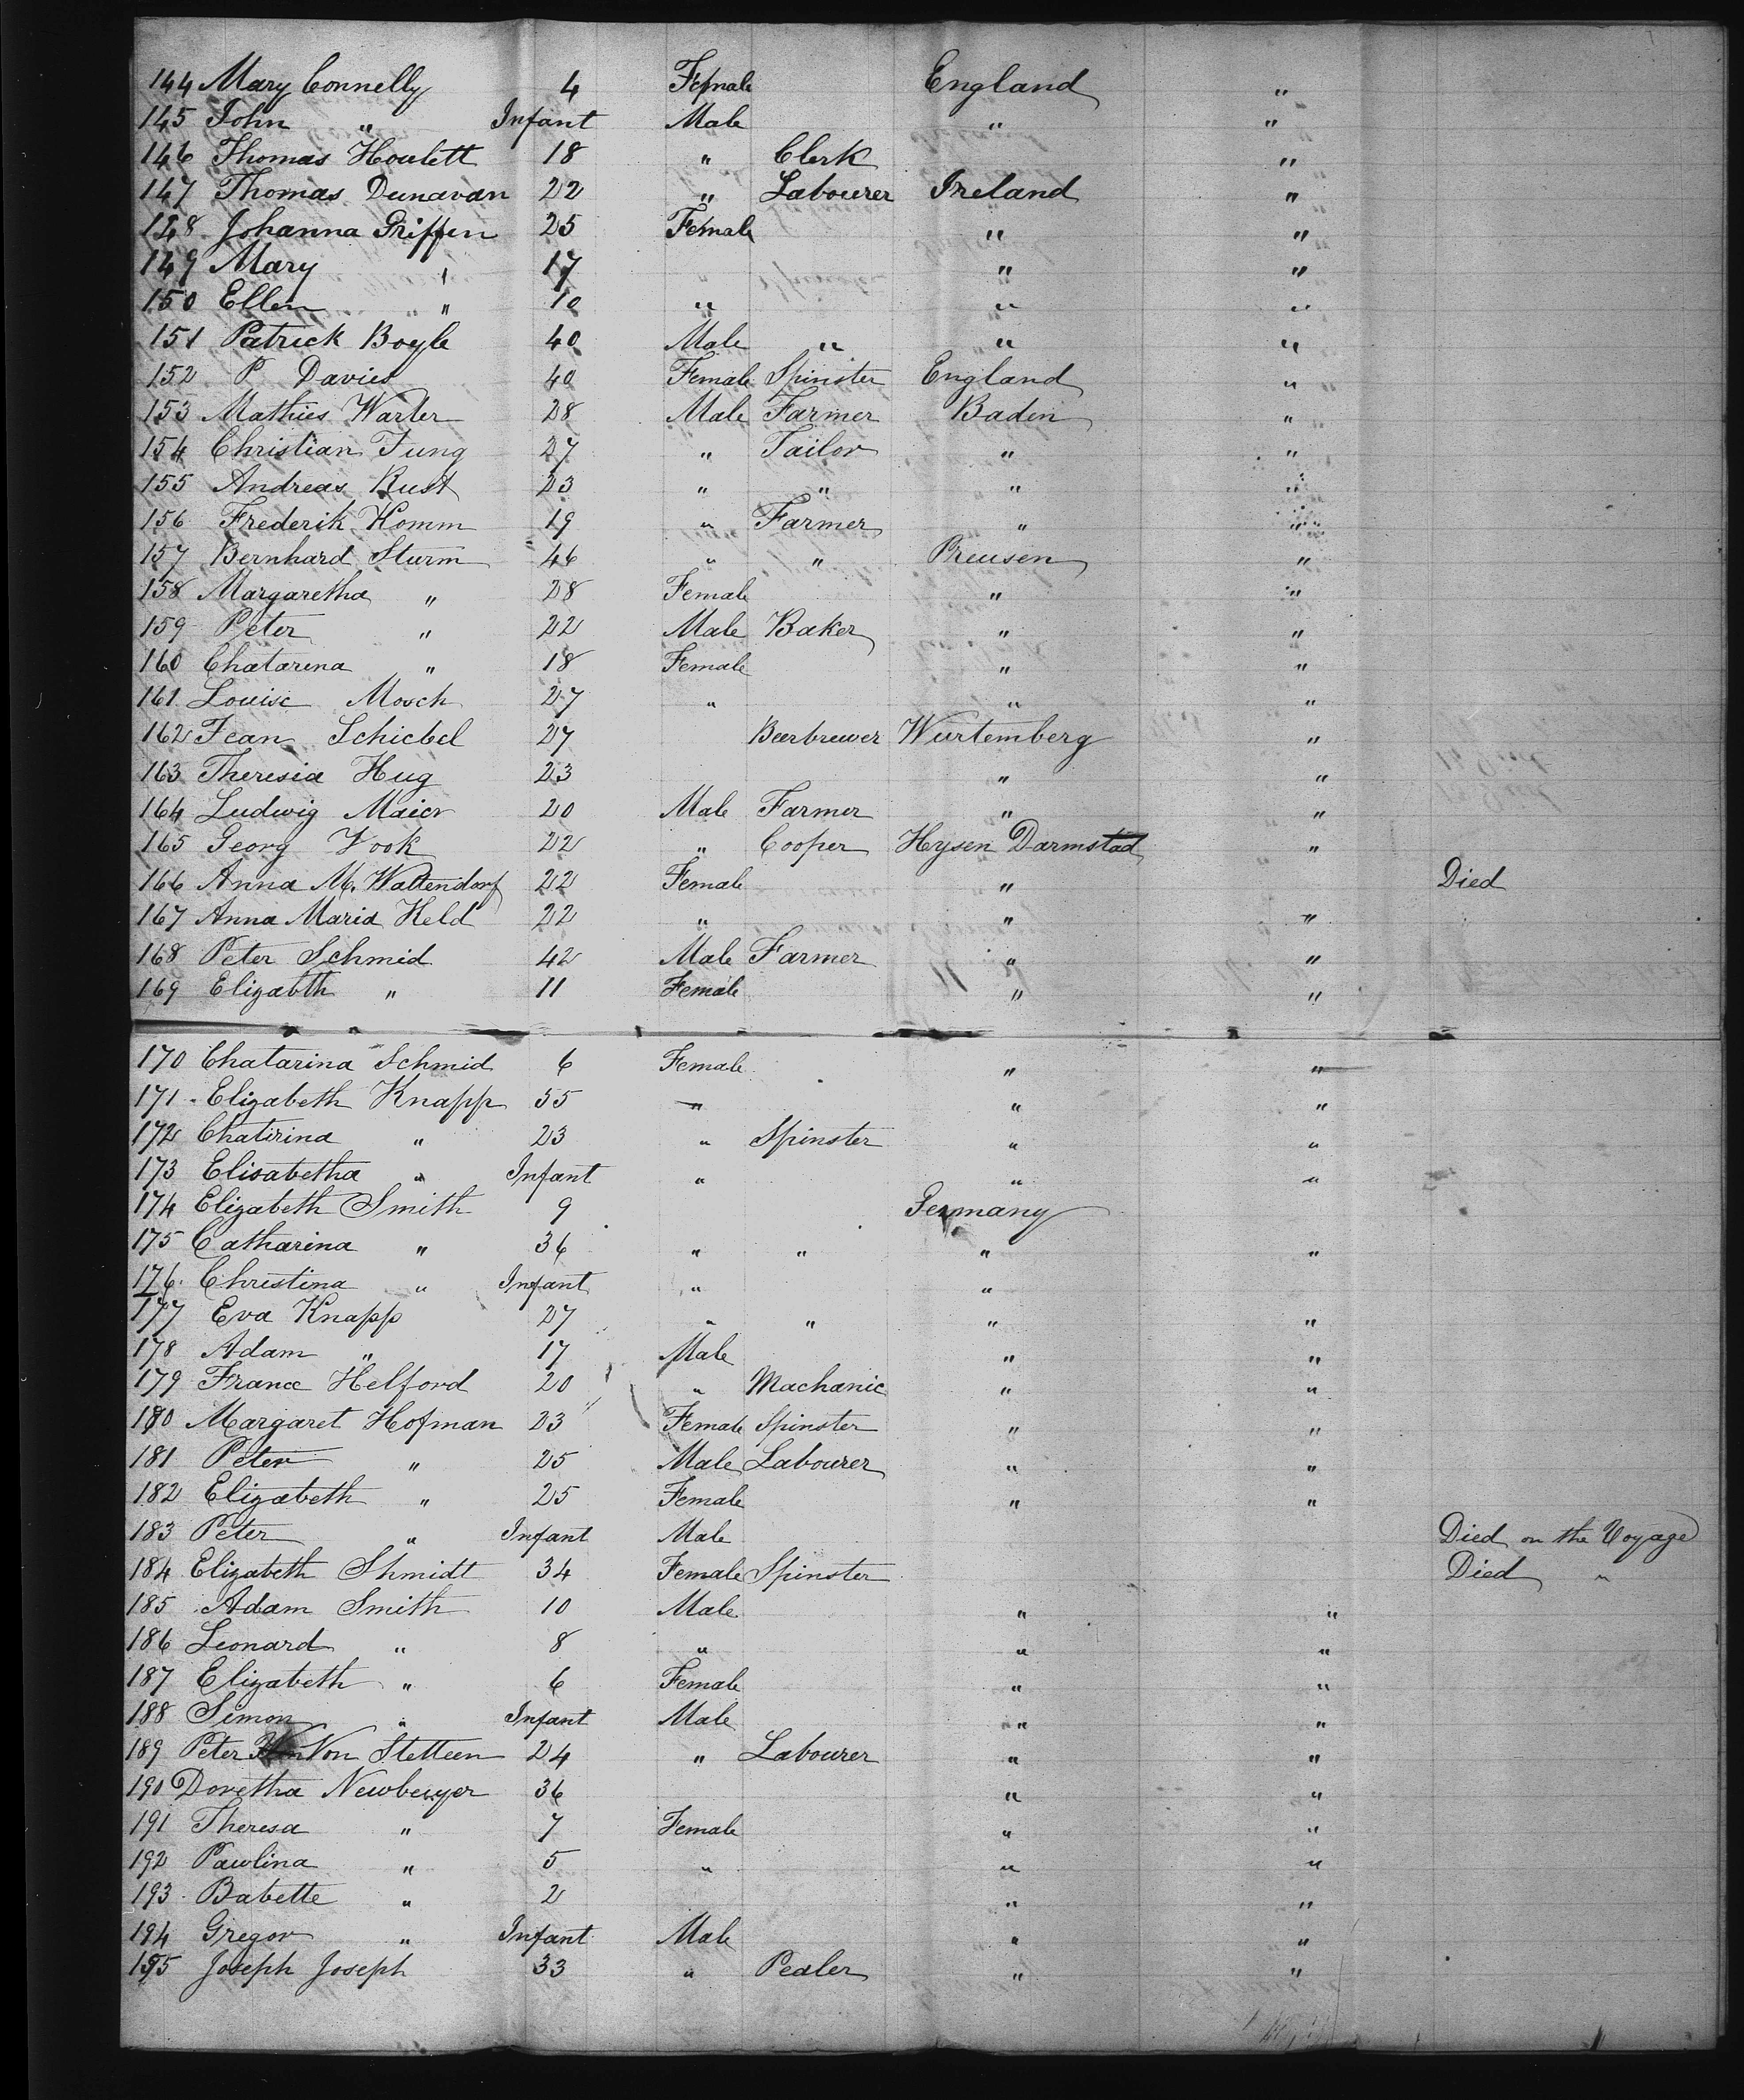 144 Mary Connelly 4 Female England "
145 John " Infant Male " "
146 Thomas Houlett 18 " Clerk "
147 Thomas Dunavan 22 " Labourer Ireland "
148 Johanna Griffen 25 Female " "
149 Mary " 17 " "
150 Ellen " 10 " " "
151 Patrick Boyle 40 Male " " "
152 P Davies 40 Female Spinster England "
153 Mathies Warter 28 Male Farmer Baden "
154 Christian Jung 27 " Tailor " "
155 Andreas Rust 23 " " " "
156 Frederik Komm 19 " Farmer " "
157 Bernhard Sturm 46 " " Preusen "
158 Margaretha " 28 Female " "
159 Peter " 22 Male Baker " "
160 Chatarina " 18 Female " "
161 Louise Mosch 27 " " "
162 Jean Schiebel 27 Beerbrewer Wurtemberg "
163 Theresia Hug 23 " "
164 Ludwig Maier 20 Male Farmer " "
165 Georg Vook 22 " Cooper Hysen Darmstad "
166 Anna M. Waltendorf 22 Female " Died
167 Anna Maria Held 22 " " "
168 Peter Schmid 42 Male Farmer " "
169 Elizabth " 11 Female " "
170 Chatarina Schmid 6 Female " "
171 Elizabeth Knapp 55 " " "
172 Chatirina " 23 " Spinster " "
173 Elisabetha " Infant " " "
174 Elizabeth Smith 9 Germany
175 Catharina " 36 " " " "
176 Christina " Infant " "
177 Eva Knapp 27 " " " "
178 Adam " 17 Male " "
179 Franz Helford 20 " Machanic " "
180 Margaret Hofman 23 Female Spinster " "
181 Peter " 25 Male Labourer " "
182 Elizabeth " 25 Female " "
183 Peter " Infant Male Died on the Voyage
184 Elizabeth Shmidt 34 Female Spinster Died "
185 Adam Smith 10 Male " "
186 Leonard " 8 " " "
187 Elizabeth " 6 Female " "
188 Simon " Infant Male " "
189 Peter Von Stetteen 24 " Labourer " "
190 Doretha Newberger 36 " "
191 Theresa " 7 Female " "
192 Pawlina " 5 " " "
193 Babette " 2 " "
194 Gregor " Infant Male " "
195 Joseph Joseph 33 " Pedler " "